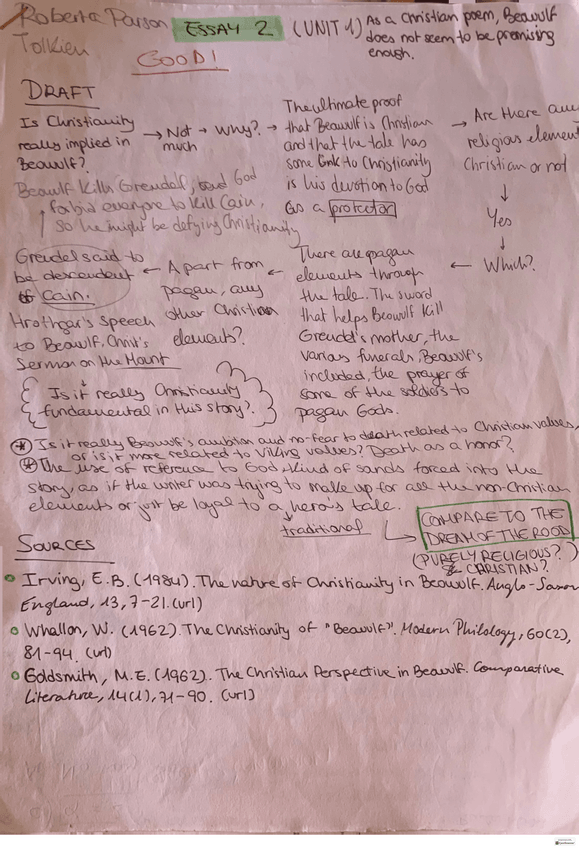 Roberta Parson ESSAY 2 (UNIT 1) As a Christian poem, Beowulf
Tolkien does not seem to be promising
GOOD! enough.
DRAFT
Is Christianity
really implied in
Beowulf?
→ Not → Why? →
much
The ultimate proof
that Beowulf is Christian
and that the tale has
some link to Christianity
is his devotion to God
as a protector
→ Are there any
religious element
Christian or not
↓
Yes
↓
← Which?
Beowulf kills Grendell, and God
forbid everyone to kill Cain,
so he might be defying Christianity
There are pagan
elements through
the tale. The sword
that helps Beowulf kill
Grendel's mother, the
various funerals, Beowulf's
included, the prayer of
some of the soldiers to
pagan Gods.
← Apart from ←
pagan, any
other Christian
elements?
Grendel said to
be descendent
of Cain.
Hrothgar's speech
to Beowulf, Christ's
Sermon on the Mount
Is it really Christianity
fundamental in this story?
* Is it really Beowulf's ambition and no-fear to death related to Christian values,
or is it more related to Viking values? Death as a honor?
* The use of reference to God kind of sands forced into the
story, as if the writer was trying to make up for all the non-Christian
elements or just be loyal to a hero's tale.
↓
traditional
COMPARE TO THE
DREAM OF THE ROOD
(PURELY RELIGIOUS?
& CHRISTIAN?
SOURCES
• Irving, E.B. (1984). The nature of Christianity in Beowulf. Anglo-Saxon
England, 13, 7-21. (url)
• Whallon, W. (1962). The Christianity of "Beowulf". Modern Philology, 60(2),
81-94. (url)
• Goldsmith, M.E. (1962). The Christian Perspective in Beowulf. Comparative
Literature, 14(1), 71-90. (url)